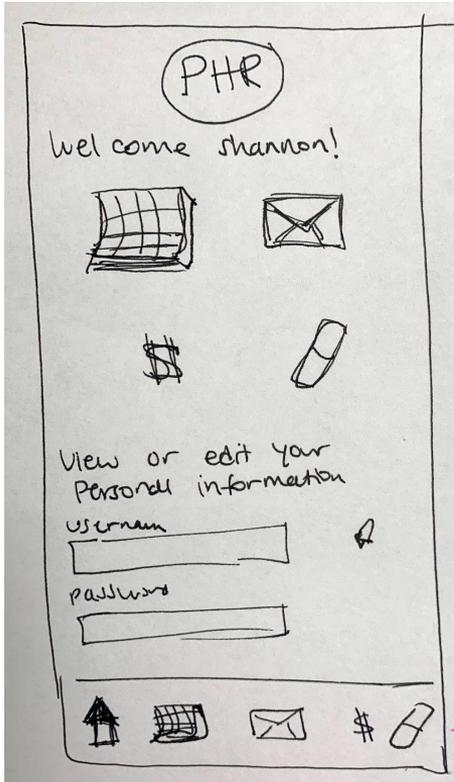 PHR
Welcome shannon!
$
View or edit your
Personal information
username
password
$